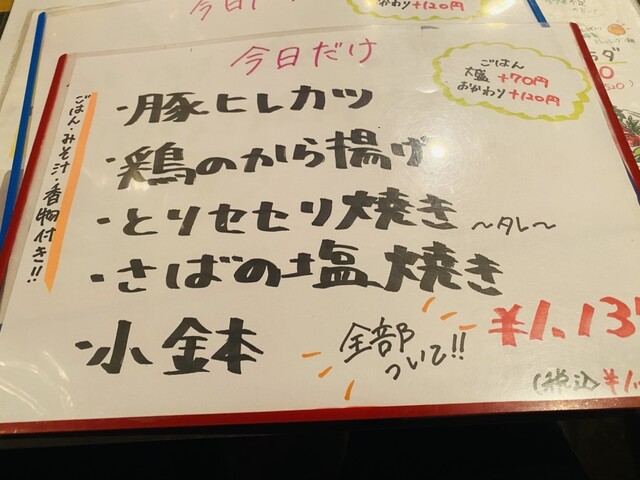 今日だけ
ごはん
大盛 +70円
おかわり +120円
ごはん・みそ汁・香物付き!!
・豚ヒレカツ
・鶏のから揚げ
・とりセセリ焼き ～タレ～
・さばの塩焼き
・小鉢
全部
ついて!!
¥1,13
(税込¥1,
今日
おかわり+120円